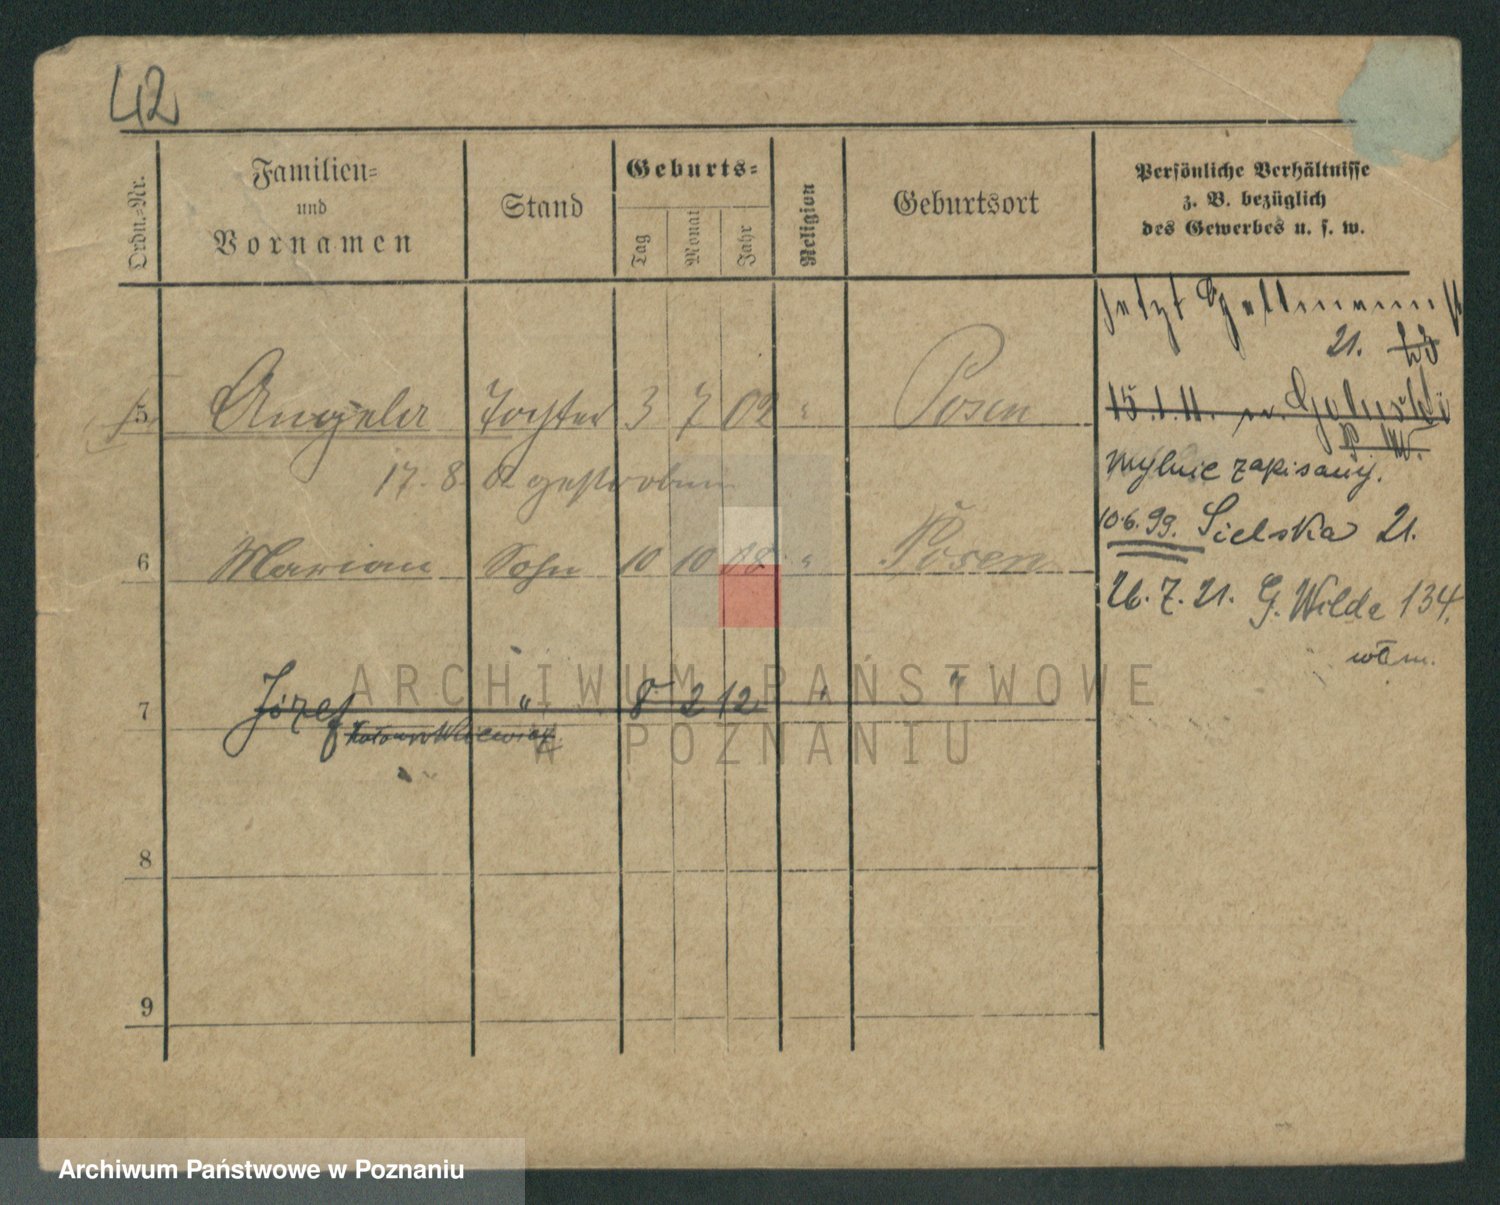 42
Ordn.=Nr.
Familien=
und
Vornamen
Stand
Geburts=
Tag
Monat
Jahr
Religion
Geburtsort
Persönliche Verhältnisse
z. B. bezüglich
des Gewerbes u. s. w.
jetzt
21.
5 Angela Tochter 3 7 02 " Posen
15.1.11.
17. 8. gestorben
mylnie zapisany.
10.6.99. Sielska 21.
6 Marian Sohn 10 10 08 " Posen
26.7.21. G. Wilda 134.
włm.
7 Józef " 8 2 12 " "
8
9
ARCHIWUM PAŃSTWOWE
W POZNANIU
Archiwum Państwowe w Poznaniu